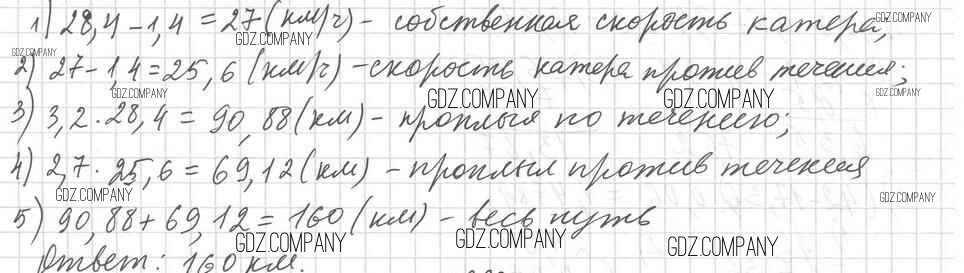 1) 28,4 – 1,4 = 27 (км/ч) – собственная скорость катера;
2) 27 – 1,4 = 25,6 (км/ч) – скорость катера против течения;
3) 3,2 · 28,4 = 90,88 (км) – проплыл по течению;
4) 2,7 · 25,6 = 69,12 (км) – проплыл против течения
5) 90,88 + 69,12 = 160 (км) – весь путь
Ответ: 160 км.
GDZ.COMPANY
GDZ.COMPANY
GDZ.COMPANY
GDZ.COMPANY
GDZ.COMPANY
GDZ.COMPANY
GDZ.COMPANY
GDZ.COMPANY
GDZ.COMPANY
GDZ.COMPANY
GDZ.COMPANY
GDZ.COMPANY